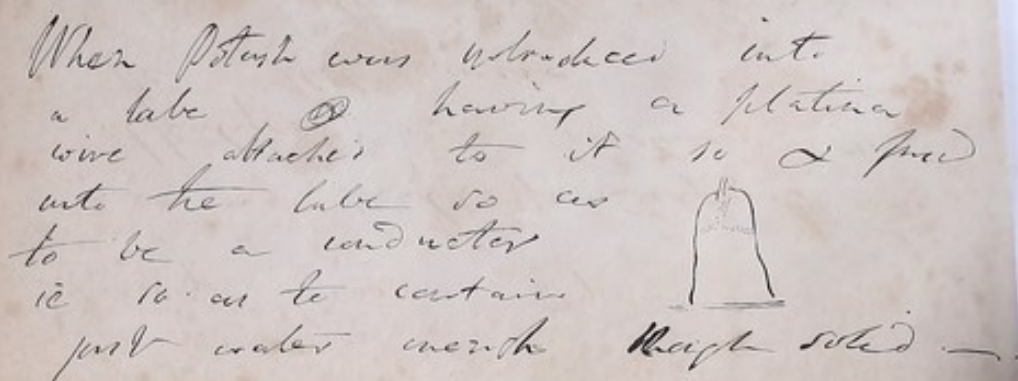 When Potash was introduced into
a tube having a platina
wire attached to it so & fused
into the tube so as
to be a conductor
ie so as to contain
just water enough though solid —